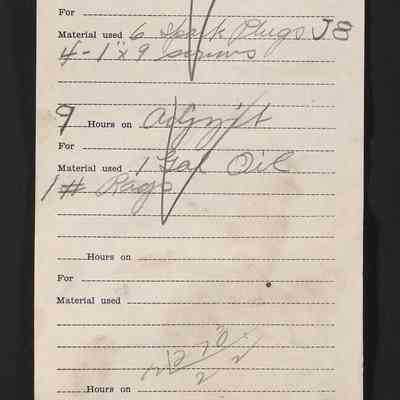 For
Material used 6 Spark Plugs J8
4 - 1" x 9 screws
9 Hours on
For
Material used 1 Gal Oil
1 # Rags
Hours on
For
Material used
Hours on